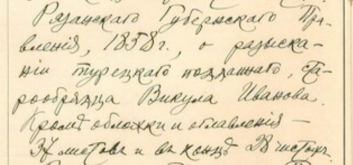 Рязанскаго Губернскаго Пра-
вленія, 1858 г., о разыска-
ніи турецкаго подданнаго, ста-
рообрядца Викула Иванова.
Кромѣ обложки и оглавленія –
37 листовъ и въ концѣ 28 чистыхъ.